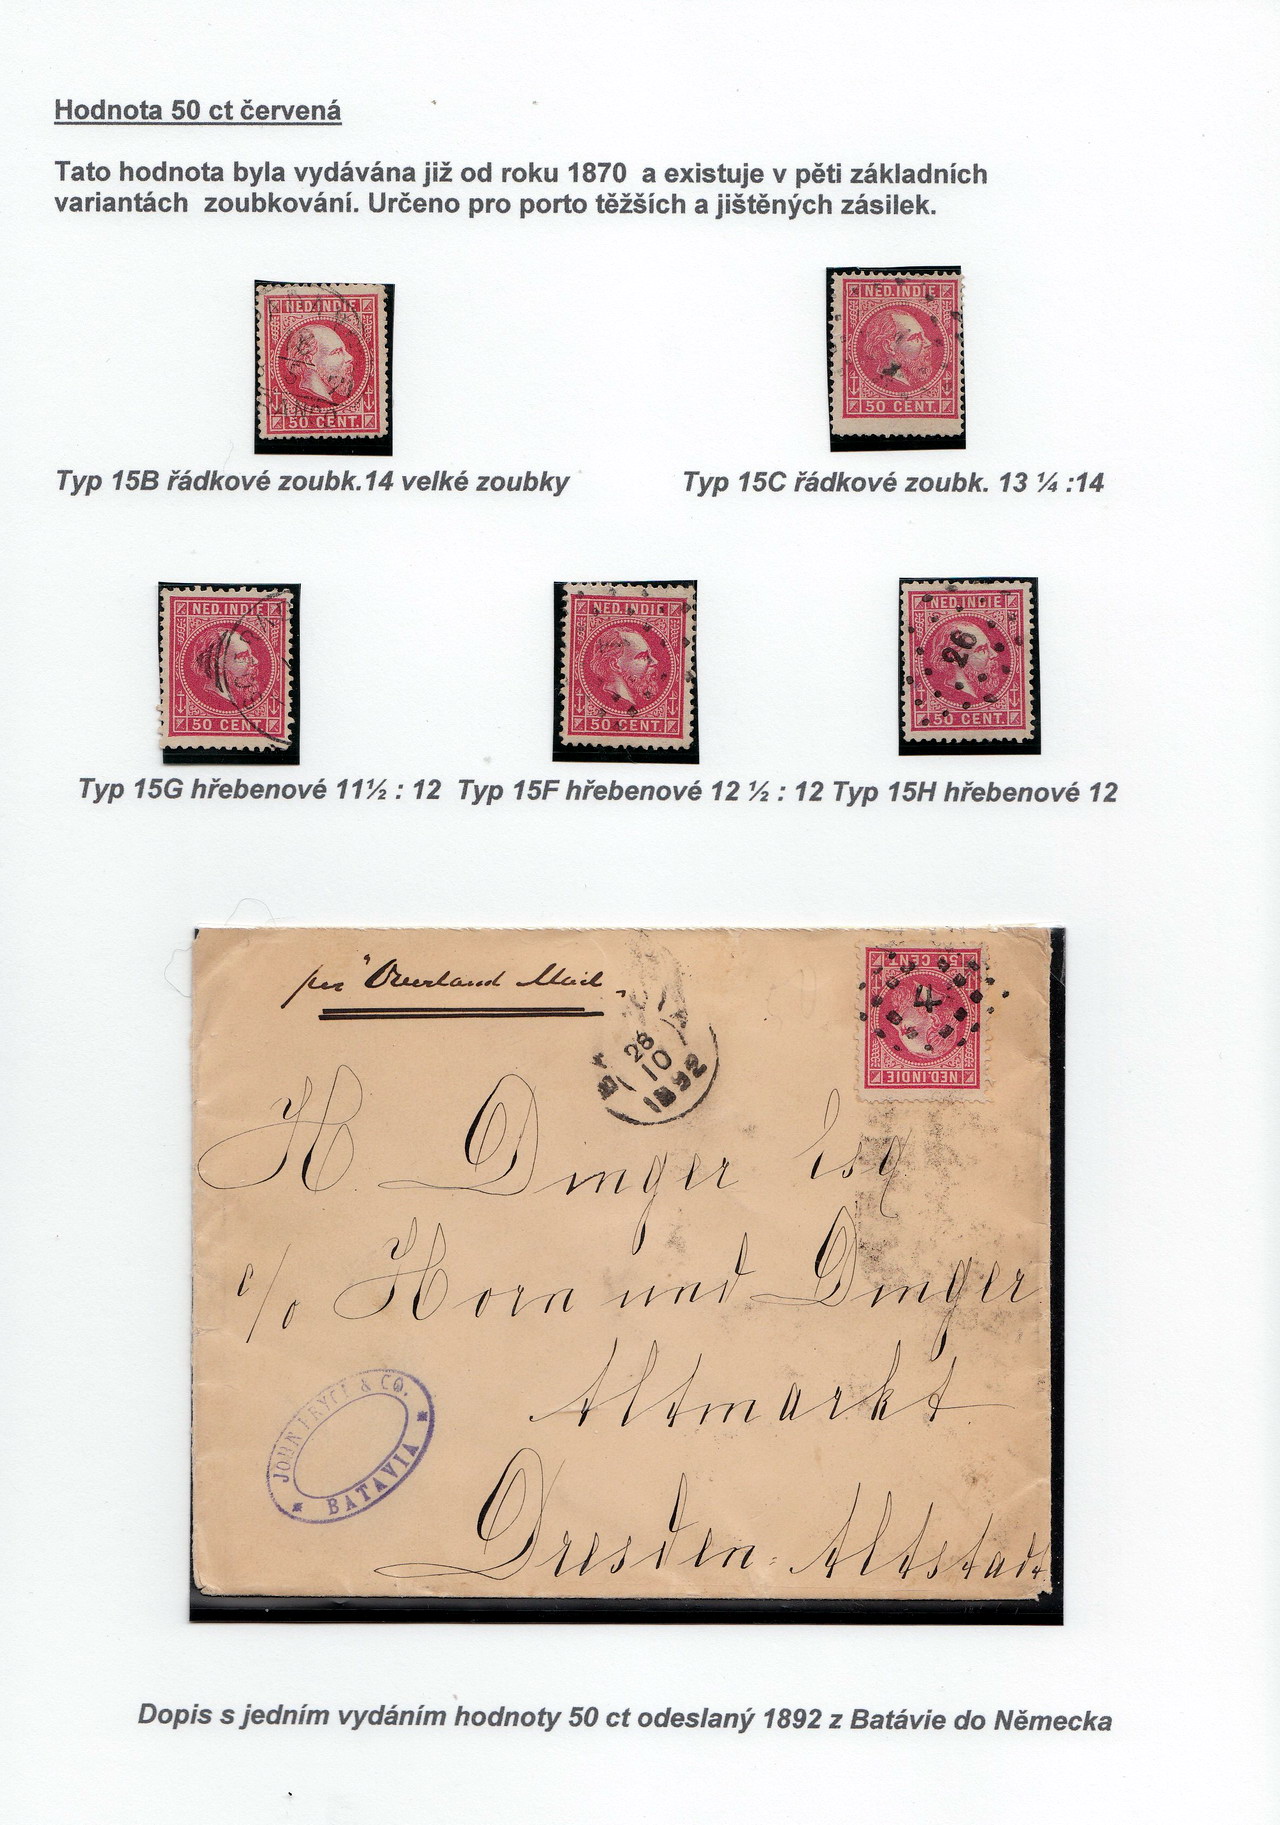 Hodnota 50 ct červená
Tato hodnota byla vydávána již od roku 1870 a existuje v pěti základních
variantách zoubkování. Určeno pro porto těžších a jištěných zásilek.
NED.INDIE
50 CENT.
NED.INDIE
50 CENT.
Typ 15B řádkové zoubk.14 velké zoubky
Typ 15C řádkové zoubk. 13 ¼ :14
NED.INDIE
50 CENT.
NED.INDIE
50 CENT.
NED.INDIE
26
50 CENT.
Typ 15G hřebenové 11½ : 12
Typ 15F hřebenové 12 ½ : 12
Typ 15H hřebenové 12
per "Overland Mail
50 CENT
4
NED.INDIE
28
10
1892
H Dinger Esq
c/o Horn und Dinger
Altmarkt
& CO.
BATAVIA
Dresden: Altstadt
Dopis s jedním vydáním hodnoty 50 ct odeslaný 1892 z Batávie do Německa